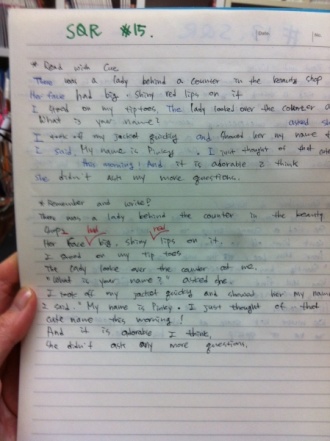 SQR #15.
* Read with Cue
There was a lady behind a counter in the beauty shop
Her face had big, shiny red lips on it
I stood on my tiptoes, The lady looked over the counter
What is your name?
I took off my jacket quickly and showed her my name
I said My name is Pinky. I just thought of that cute
this morning! And it is adorable I think
she didn't ask my more question.
* Remember and write?
There was a lady behind the counter in the beauty
shop
had red
Her face big, shiny lips on it.
I stood on my tip toes
The lady looke over the counter at me.
"What is your name?" asked she.
I took off my jacket quickly and showed her my name
I said "My name is Pinky. I just thought of that
cute name this morning!
And it is adorable I think,
She didn't ask any more questions.